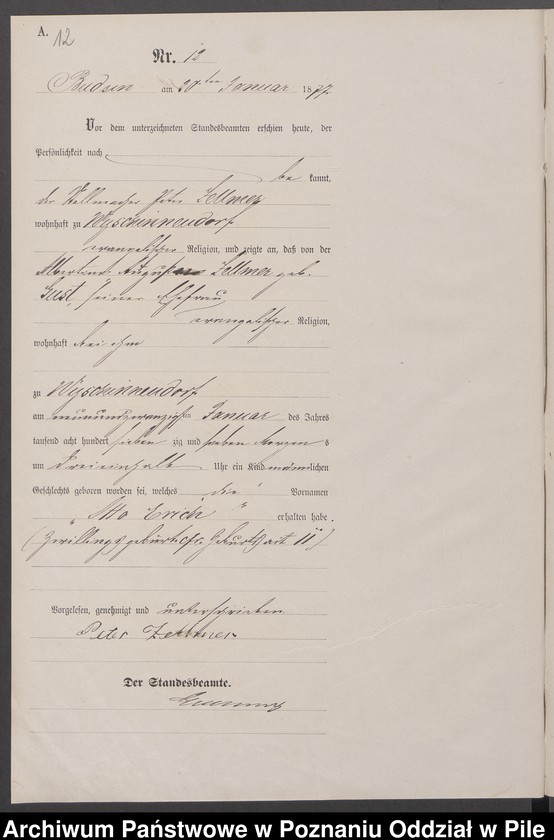 A.
12
Nr. 12
Budsin am 30ten Januar 1877.
Vor dem unterzeichneten Standesbeamten erschien heute, der
Persönlichkeit nach
be kannt,
der Stellmacher Peter Zellmer
wohnhaft zu Wyschinnendorf
evangelischer Religion, und zeigte an, daß von der
Zellmer geb.
Gust, seiner Ehefrau
evangelischer Religion,
wohnhaft bei ihm
zu Wyschinnendorf
am neunundzwanzigsten Januar des Jahres
tausend acht hundert sieben zig und sieben Morgens
um dreieinhalb Uhr ein Kind männlichen
Geschlechts geboren worden sei, welches die Vornamen
„Otto Erich" erhalten habe.
(Zwillingsgeburt cfr. Geburtsact 11)
Vorgelesen, genehmigt und unterschrieben
Peter Zellmer
Der Standesbeamte.
Archiwum Państwowe w Poznaniu Oddział w Pile